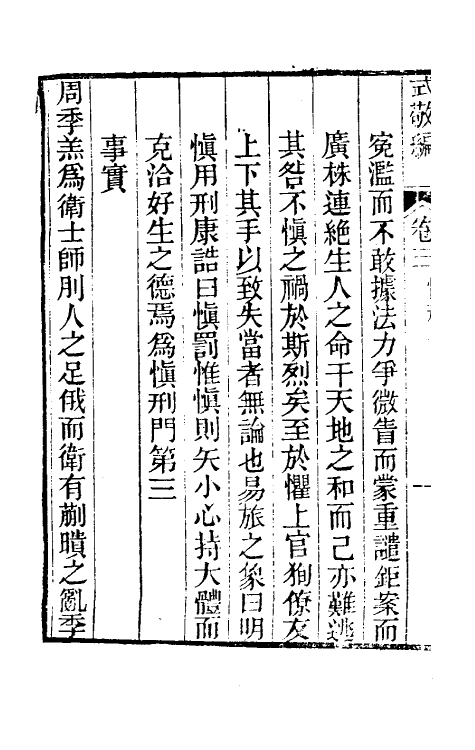 式敬編 卷三
冤濫而不敢據法力爭微眚而蒙重譴鉅案而
廣株連絶生人之命干天地之和而己亦難逃
其咎不慎之禍於斯烈矣至於懼上官狥僚友
上下其手以致失當者無論也易旅之象曰明
愼用刑康誥曰愼罰惟愼則矢小心持大體而
克洽好生之德焉爲愼刑門第三
事實
周季羔爲衛士師刖人之足俄而衛有蒯聵之亂季